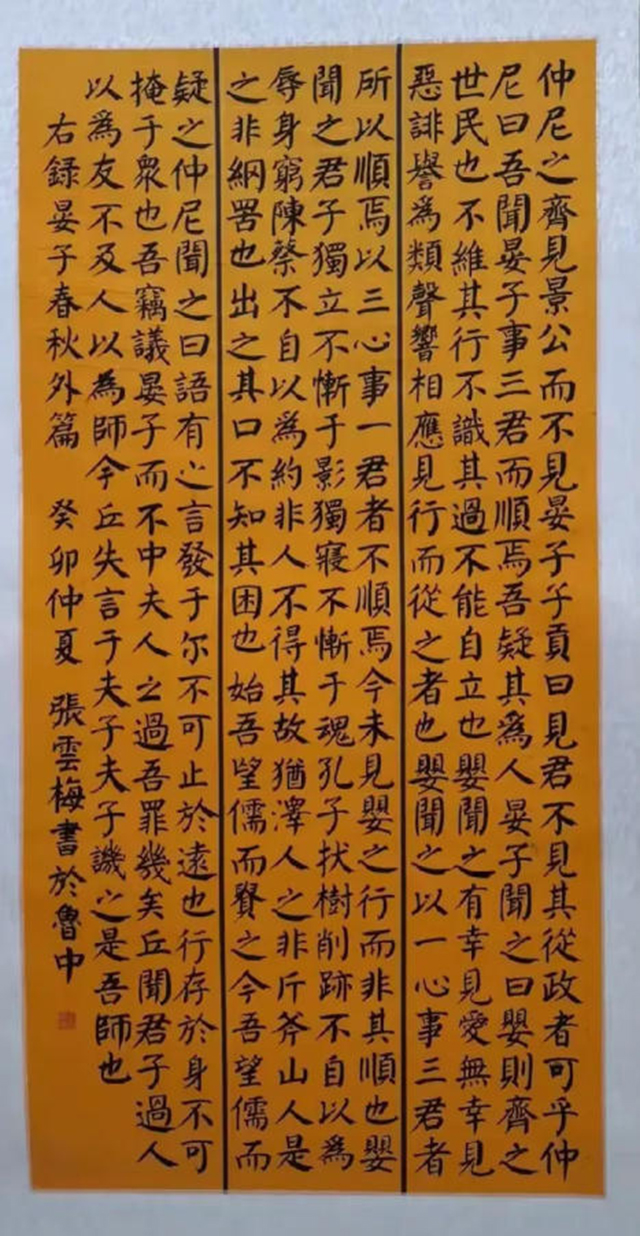 仲尼之齊見景公而不見晏子子貢曰見君不見其從政者可乎仲
尼曰吾聞晏子事三君而順焉吾疑其爲人晏子聞之曰嬰則齊之
世民也不維其行不識其過不能自立也嬰聞之有幸見愛無幸見
惡誹譽爲類聲響相應見行而從之者也嬰聞之以一心事三君者
所以順焉以三心事一君者不順焉今未見嬰之行而非其順也嬰
聞之君子獨立不慚于影獨寢不慚于魂孔子拔樹削跡不自以爲
辱身窮陳蔡不自以爲約非人不得其故猶澤人之非斤斧山人是
之非網罟也出之其口不知其困也始吾望儒而賢之今吾望儒而
疑之仲尼聞之曰語有之言發于尔不可止於遠也行存於身不可
掩于衆也吾竊議晏子而不中夫人之過吾罪幾矣丘聞君子過人
以爲友不及人以爲師今丘失言于夫子夫子譏之是吾師也
右録晏子春秋外篇 癸卯仲夏 張雲梅書於魯中